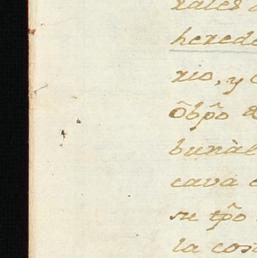 rales
hered
rio, y
õbp̃o
bunàl
cava
su tp̃o
la cos